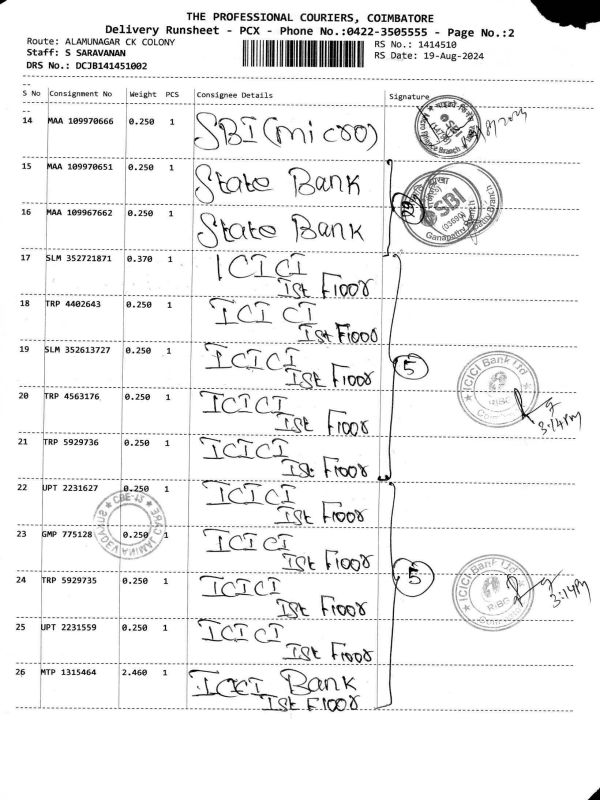 THE PROFESSIONAL COURIERS, COIMBATORE
Delivery Runsheet - PCX - Phone No.:0422-3505555 - Page No.:2
Route: ALAMUNAGAR CK COLONY
Staff: S SARAVANAN
DRS No.: DCJB141451002
RS No.: 1414510
RS Date: 19-Aug-2024
S No Consignment No Weight PCS Consignee Details Signature
14 MAA 109970666 0.250 1 SBI (micro)
15 MAA 109970651 0.250 1 State Bank
16 MAA 109967662 0.250 1 State Bank
SBI
(03690)
Ganapathy Branch
17 SLM 352721871 0.370 1 ICICI
Ist Floor
18 TRP 4402643 0.250 1 ICICI
Ist Floor
19 SLM 352613727 0.250 1 ICICI
Ist Floor
5
ICICI Bank Ltd
3:14pm
20 TRP 4563176 0.250 1 ICICI
Ist Floor
21 TRP 5929736 0.250 1 ICICI
Ist Floor
22 UPT 2231627 0.250 1 ICICI
Ist Floor
CBE-15
23 GMP 775128 0.250 1 ICICI
Ist Floor
24 TRP 5929735 0.250 1 ICICI
Ist Floor
5
ICICI Bank Ltd
RIBG
3:14pm
25 UPT 2231559 0.250 1 ICICI
Ist Floor
26 MTP 1315464 2.460 1 ICICI Bank
Ist Floor